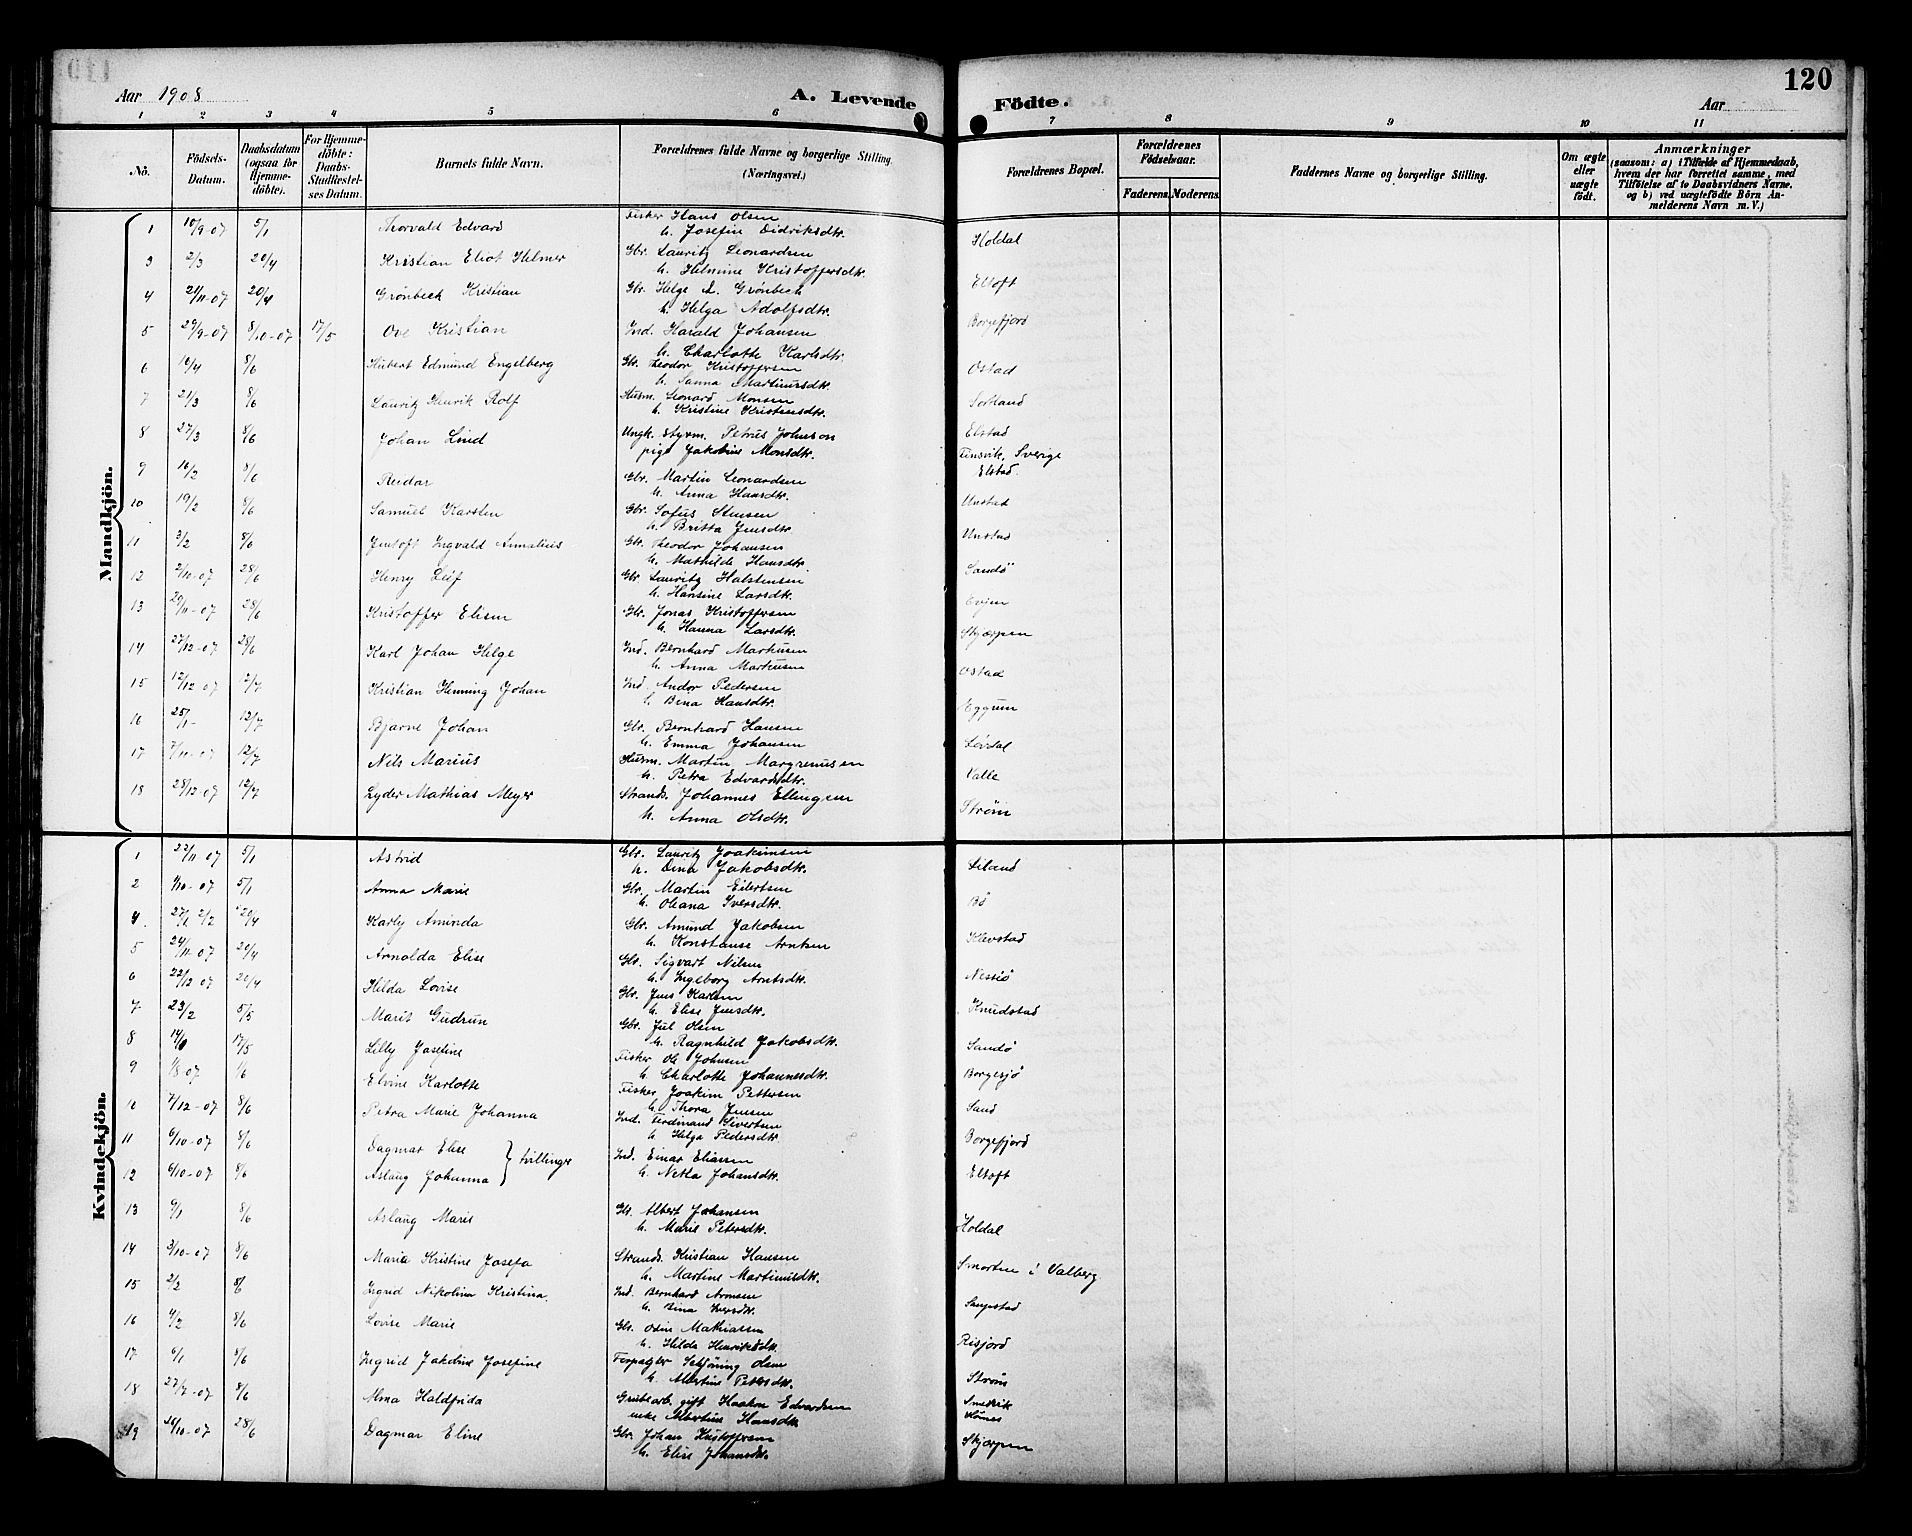 120
Aar 1908
A. Levende Födte.
Aar
1 2 3 4 5 6 7 8 9 10 11
No.
Födsels-Datum.
Daabsdatum (ogsaa for Hjemme-döbte).
For Hjemme-döbte: Daabs-Stadfæstel-ses Datum.
Barnets fulde Navn.
Forældrenes fulde Navne og borgerlige Stilling. (Næringsvei.)
Forældrenes Bopæl.
Forældrenes Födselsaar.
Faderens. Moderens.
Faddernes Navne og borgerlige Stilling.
Om ægte eller uægte født.
Anmærkninger
(saasom: a) i Tilfælde af Hjemmedaab, hvem der har forrettet samme, med Tilföielse af to Daabsvidners Navne, og b) ved uægtefödte Börn An-melderens Navn m. V.)
Mandkjön.
1 10/9-07 5/1 Thorvald Edvard Fisker Hans Olsen
h. Josefine Didriksdtr. Holdal
3 2/3 20/4 Kristian Eliot Helmer Gbr. Lauritz Leonardsen
h. Helmine Kristoffersdtr. Eltoft
4 21/11-07 20/4 Grönbech Kristian Gbr. Helge A. Grønbech
h. Helga Adolfsdtr. Borgefjord
5 29/9-07 8/10-07 17/5 Ove Kristian Ind. Harald Johansen
h. Charlotte Karlsdtr. Ostad
6 10/4 8/6 Hubert Edmund Engelberg Gbr. Theodor Kristoffersen
h. Sanna Martinusdtr. Sortland
7 21/3 8/6 Lauritz Henrik Rolf Husm. Leonard Monsen
h. Kristine Kristensdtr. Elstad
8 27/3 8/6 Johan Lind Ungk. Styrm. Petrus Johnson
pige Jakobine Monsdtr. Sverige
Elstad
9 16/2 8/6 Reidar Gbr. Martin Leonardsen
h. Anna Hansdtr. Unstad
10 19/2 8/6 Samuel Karsten Gbr. Sofus Stensen
h. Britta Jensdtr. Unstad
11 3/2 8/6 Jentoft Ingvald Annatius Gbr. Theodor Johansen
h. Mathilde Hansdtr. Sandö
12 2/10-07 28/6 Henry Leif Gbr. Lauritz Halstensen
h. Hansine Larsdtr. Evjen
13 20/11-07 28/6 Kristoffer Elisen Gbr. Jonas Kristoffersen
h. Hanna Larsdtr. Skjærpen
14 27/12-07 28/6 Karl Johan Helge Ind. Bernhard Markusen
h. Anna Markusen Ostad
15 12/12-07 12/7 Kristian Henning Johan Ind. Andor Pedersen
h. Bina Hansdtr. Eggum
16 25/1- 12/7 Bjarne Johan Gbr. Bernhard Hansen
h. Emma Johansen Lövdal
17 7/11-07 12/7 Nils Marius Husm. Martin Margrenusen
h. Petra Edvardsdtr. Valle
18 28/12-07 12/7 Lyder Mathias Meyer Strands. Johannes Ellingsen
h. Anna Olsdtr. Ström
Kvindekjön.
1 22/11-07 5/1 Astrid Gbr. Lauritz Joakimsen
h. Dina Jakobsdtr. Liland
2 1/10-07 5/1 Anna Marie Gbr. Martin Eilertsen
h. Oleana Iversdtr. Bö
4 20/4 Karly Aminda Gbr. Amund Jakobsen
h. Konstanse Arntsen Klevstad
5 24/11-07 20/4 Arnolda Elise Gbr. Sigvart Nilsen
h. Ingeborg Arntsdtr. Nessiö
6 22/12-07 20/4 Hilda Lovise Gbr. Jens Karlsen
h. Elise Jensdtr. Knudstad
7 23/2 5/5 Marit Gudrun Gbr. Jul Olsen
h. Ragnhild Jakobsdtr. Sandö
8 17/5 Lilly Josefine Fisker Ole Johnsen
h. Charlotte Johannesdtr. Borgesjö
9 1/8-07 1/6 Elvine Karlotte Fisker Joakim Pettersen
h. Thora Jensen Sand
10 7/12-07 8/6 Petra Marie Johanna Ind. Ferdinand Sivertsen
h. Helga Pedersdtr. Borgefjord
11 6/10-07 8/6 Dagmar Elise } tvillinger Ind. Einar Eliassen
12 6/10-07 8/6 Aslaug Johanna h. Netta Johansdtr. Eltoft
13 9/1 8/6 Aslaug Marie Gbr. Albert Johansen
h. Marie Petersdtr. Holdal
14 3/10-07 8/6 Maria Kristine Josefa Strands. Kristian Hansen
h. Martine Martinusdtr. Smorten i Valberg
15 2/2 8/6 Ingrid Nikolina Kristina Ind. Bernhard Aronsen
h. Bina Iversdtr.
16 4/2 8/6 Lovise Marie Gbr. Odin Mathiassen
h. Hilda Henriksdtr. Risjord
17 6/1 8/6 Ingrid Jakobine Josefine Forpagter Schjöning Olsen
h. Martine Petersdtr. Ström
18 27/7-07 8/6 Alma Haldfrida Grubearb. gift Haakon Edvardsen
enke Albertine Hansdtr.
19 26/10-07 28/6 Dagmar Eline Gbr. Johan Kristoffersen
h. Elise Johansdtr. Skjærpen